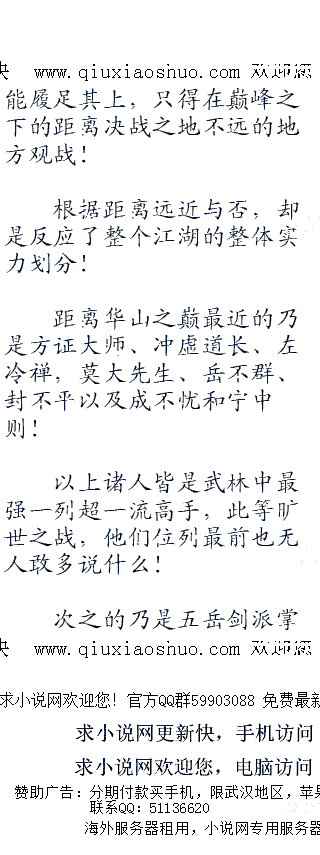 www.qiuxiaoshuo.com 欢迎您
能履足其上，只得在巅峰之
下的距离决战之地不远的地
方观战！
根据距离远近与否，却
是反应了整个江湖的整体实
力划分！
距离华山之巅最近的乃
是方证大师、冲虚道长、左
冷禅，莫大先生、岳不群、
封不平以及成不忧和宁中
则！
以上诸人皆是武林中最
强一列超一流高手，此等旷
世之战，他们位列最前也无
人敢多说什么！
次之的乃是五岳剑派掌
www.qiuxiaoshuo.com 欢迎您
求小说网欢迎您！官方QQ群59903088 免费最新
求小说网更新快，手机访问
求小说网欢迎您，电脑访问
赞助广告：分期付款买手机，限武汉地区，苹果
联系QQ：51136620
海外服务器租用，小说网专用服务器